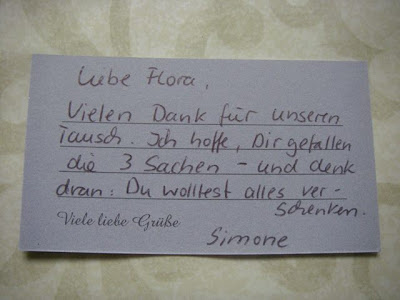 Liebe Flora,
Vielen Dank für unseren
Tausch. Ich hoffe, Dir gefallen
die 3 Sachen - und denk
dran: Du wolltest alles ver-
schenken.
Viele liebe Grüße
Simone